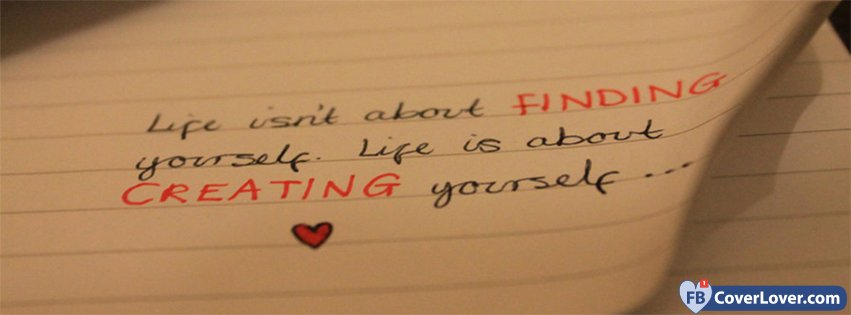 Life isn't about FINDING
yourself. Life is about
CREATING yourself...
FB CoverLover.com